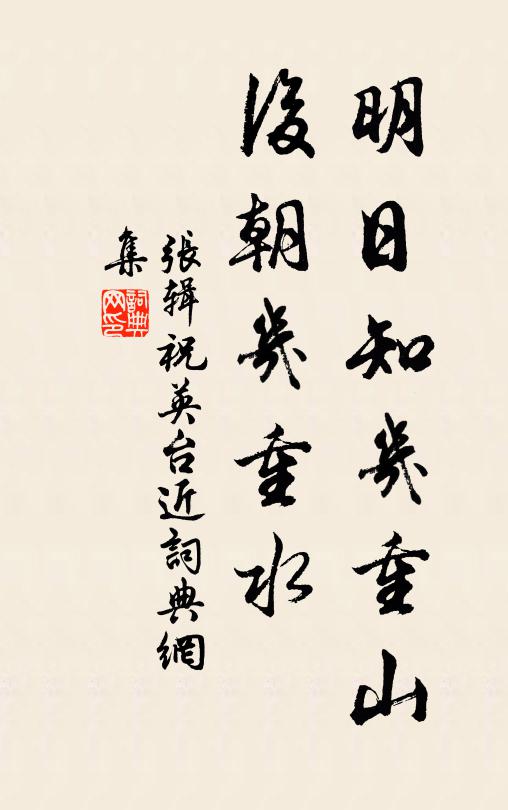 明日知幾重山
後朝幾重水
張輯祝英台近詞典網
集
詞典网印